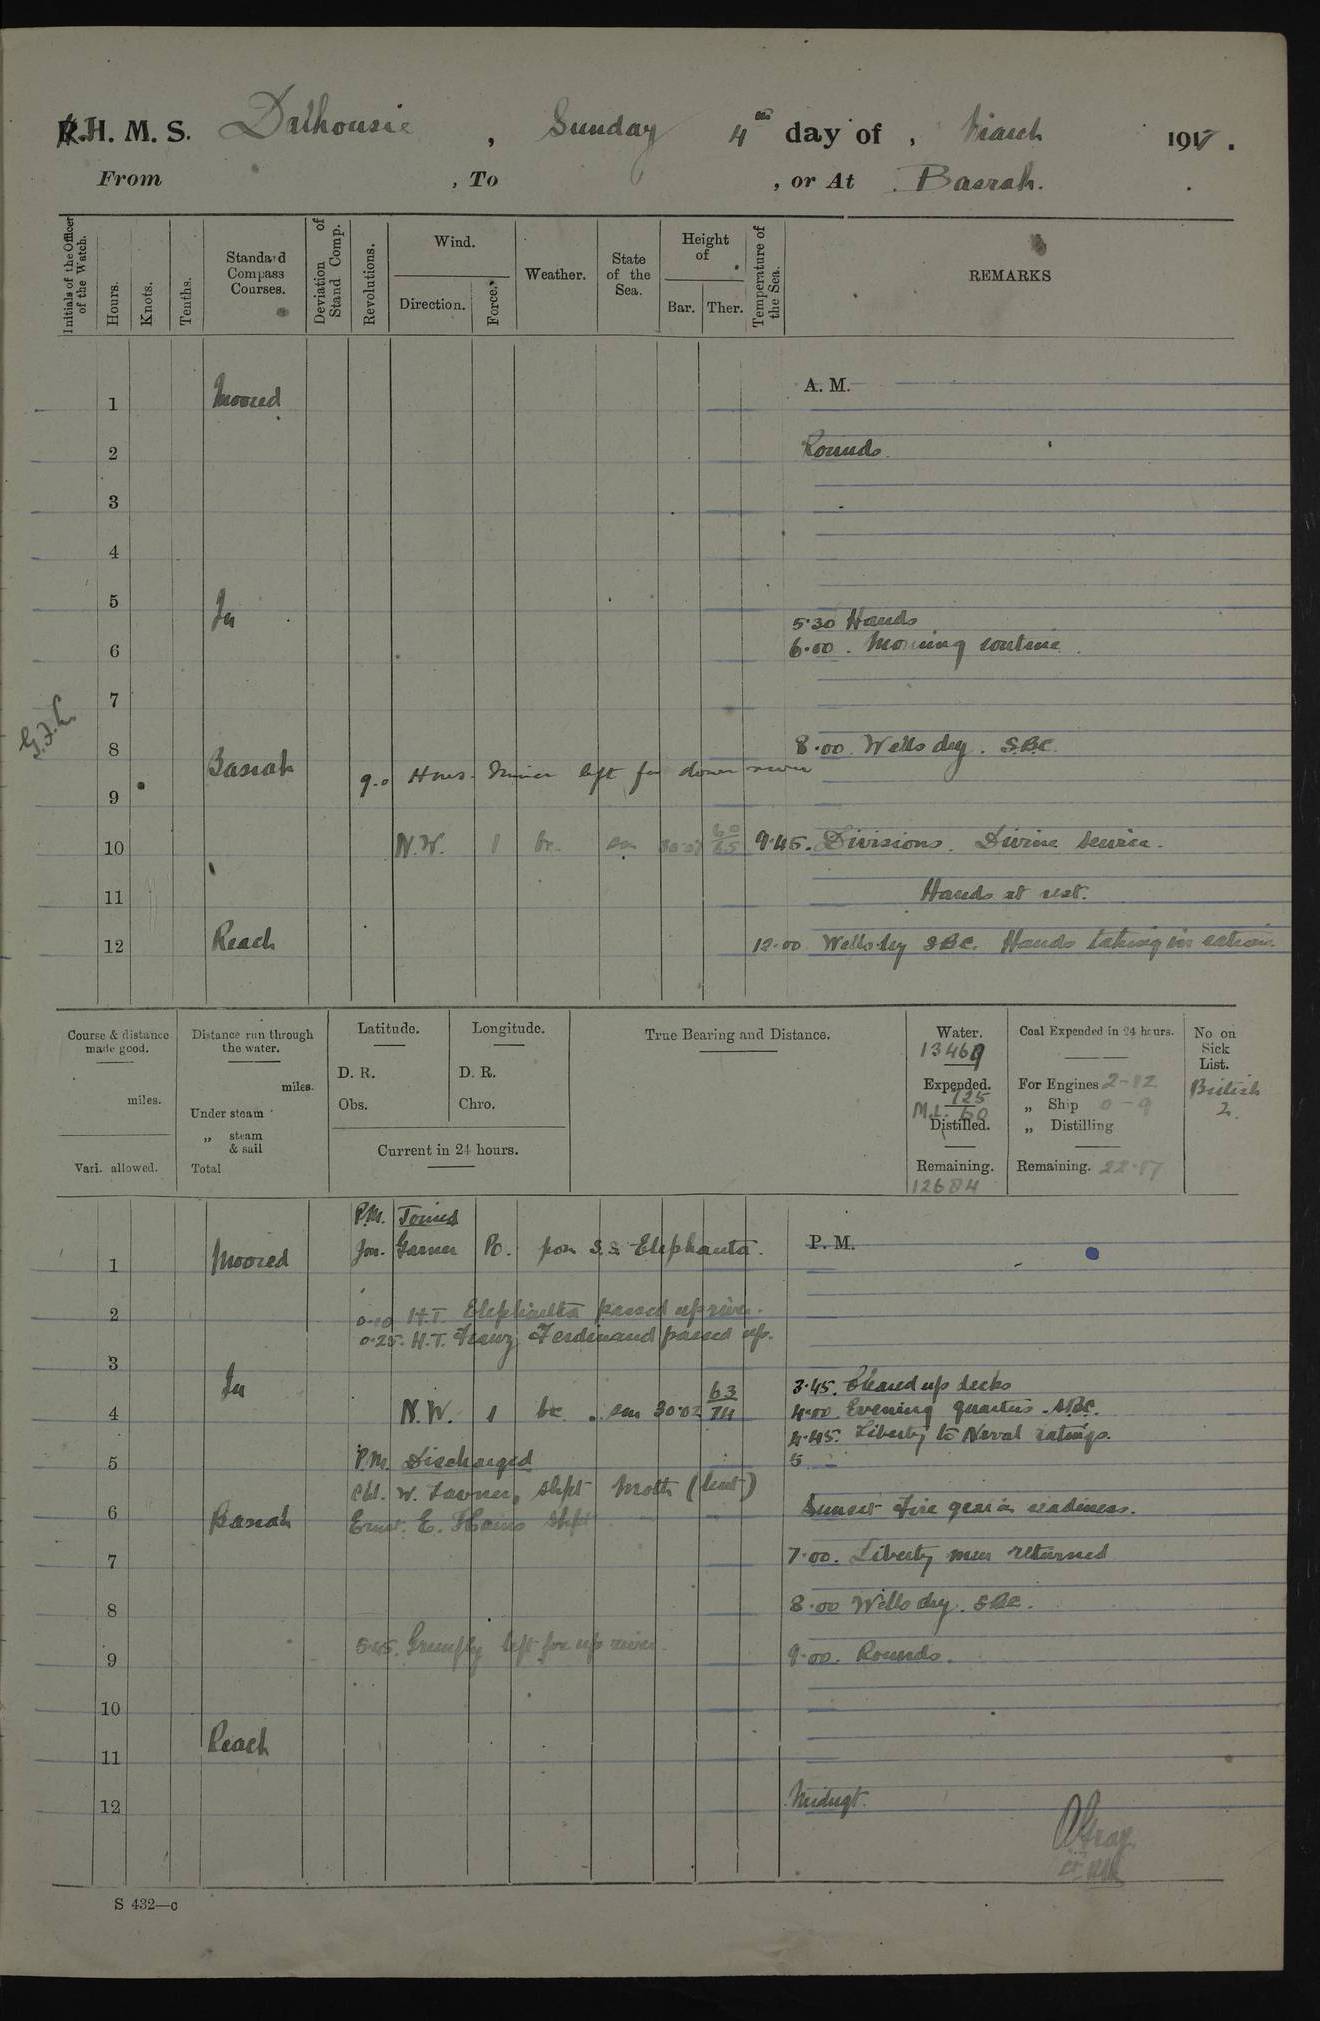 H. M. S. Dalhousie, Sunday 4th day of, March 1917.
From , To , or At Basrah.
Initials of the Officer of the Watch.
Hours.
Knots.
Tenths.
Standard Compass Courses.
Deviation of Stand Comp.
Revolutions.
Wind.
Direction.
Force.
Weather.
State of the Sea.
Height of
Bar.
Ther.
Temperature of the Sea.
REMARKS
A. M.
1 Moored
2 Rounds.
3
4
5 In
5.30 Hands
6.00. Morning routine.
6
7
G.F.L.
8 8.00. Wells dry. S.B.C.
Basrah
9.0 left for down river
9
10 N.W. 1 bc. sm 60/65 9.45. Divisions. Divine Service.
11 Hands at rest.
12 Reach 12.00 Wells dry S.B.C. Hands taking in
Course & distance made good.
miles.
Vari. allowed.
Distance run through the water.
miles.
Under steam
„ steam & sail
Total
Latitude.
D. R.
Obs.
Longitude.
D. R.
Chro.
Current in 24 hours.
True Bearing and Distance.
Water.
13469
Expended.
725
M.L. 60
Distilled.
Remaining.
12684
Coal Expended in 24 hours.
For Engines 2-12
„ Ship 0-9
„ Distilling
Remaining. 22.17
No on Sick List.
British
2.
P.M. Joined
Garner PO. from S.S. Elephanta.
P. M.
1 Moored
2 0.10 H.T. Elephanta passed up river.
0.25. H.T. Franz Ferdinand passed up.
3
In
3.45. Cleared up decks
4 N.W. 1 bc. sm 30.02 63/74 4.00 Evening quarters. S.B.C.
4.45. Liberty to Naval ratings.
5 P.M. Discharged
W. Moth (lent)
6 Basrah E. Sunset Fire gear in readiness.
7 7.00. Liberty men returned
8 8.00 Wells dry. S.B.C.
5.45. Grumpy left for up river.
9 9.00. Rounds.
10
Reach
11
12 Midngt.
S 432—c